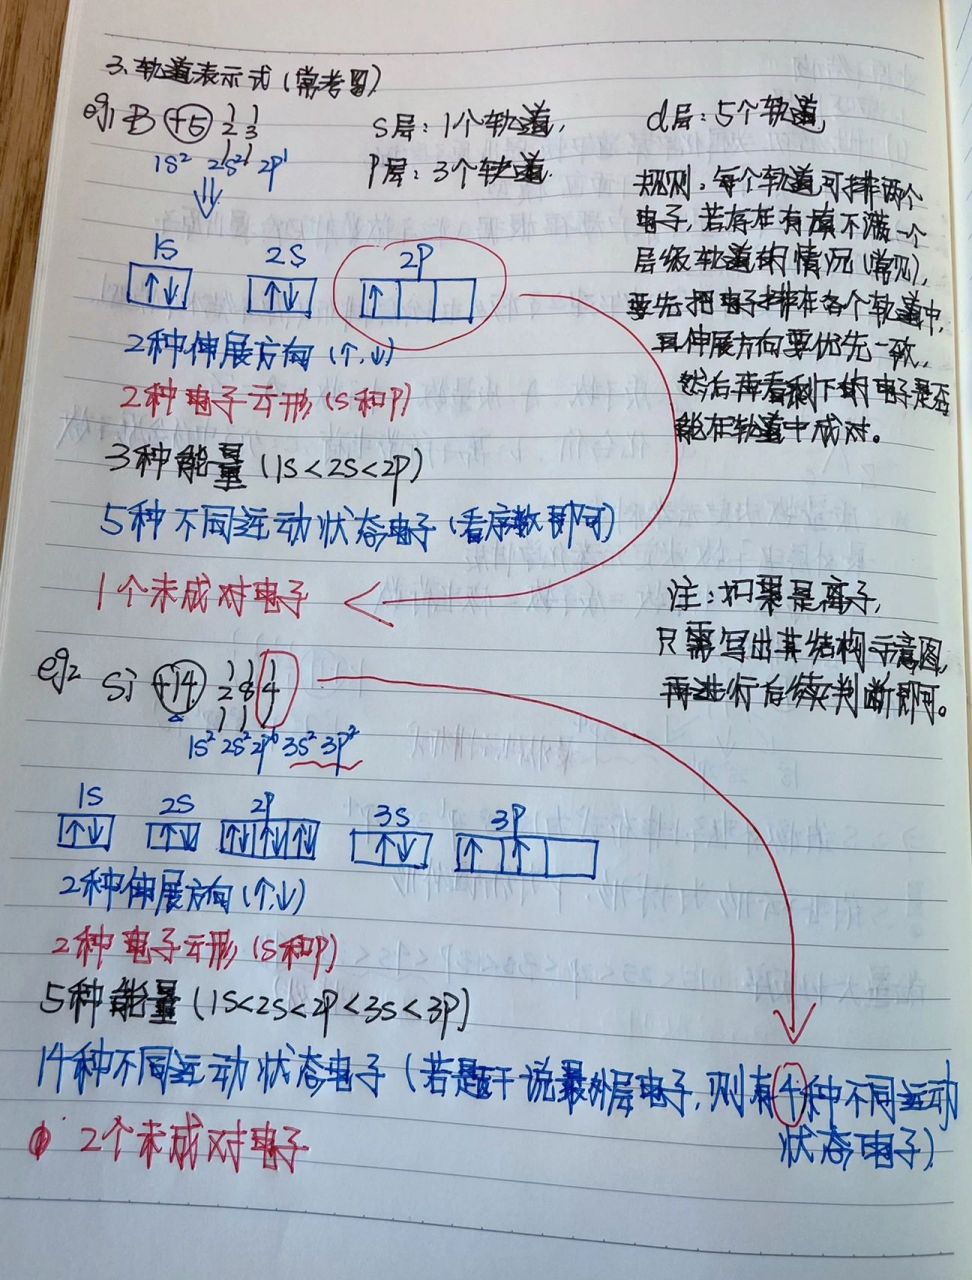 3、轨道表示式(常考写)
eg1 B +5 2 3
1s² 2s² 2p¹
s层:1个轨道,
p层:3个轨道.
d层:5个轨道
规则:每个轨道可排两个
电子,若存在有填不满一个
层级轨道的情况(常见),
要先把电子排在各个轨道中,
且伸展方向要优先一致,
然后再看剩下的电子是否
能在轨道中成对。
1S 2S 2P
↑↓ ↑↓ ↑
2种伸展方向(↑,↓)
2种电子云形(s和p)
3种能量(1s<2s<2p)
5种不同运动状态电子(看序数即可)
1个未成对电子
注:如果是离子,
只需写出其结构示意图,
再进行后续判断即可。
eg2 Si +14 2 8 4
1s² 2s² 2p⁶ 3s² 3p²
1S 2S 2P 3S 3P
↑↓ ↑↓ ↑↓ ↑↓ ↑↓ ↑↓ ↑ ↑
2种伸展方向(↑,↓)
2种电子云形(s和p)
5种能量(1s<2s<2p<3s<3p)
14种不同运动状态电子(若题干说最外层电子,则有4种不同运动
状态电子)
2个未成对电子